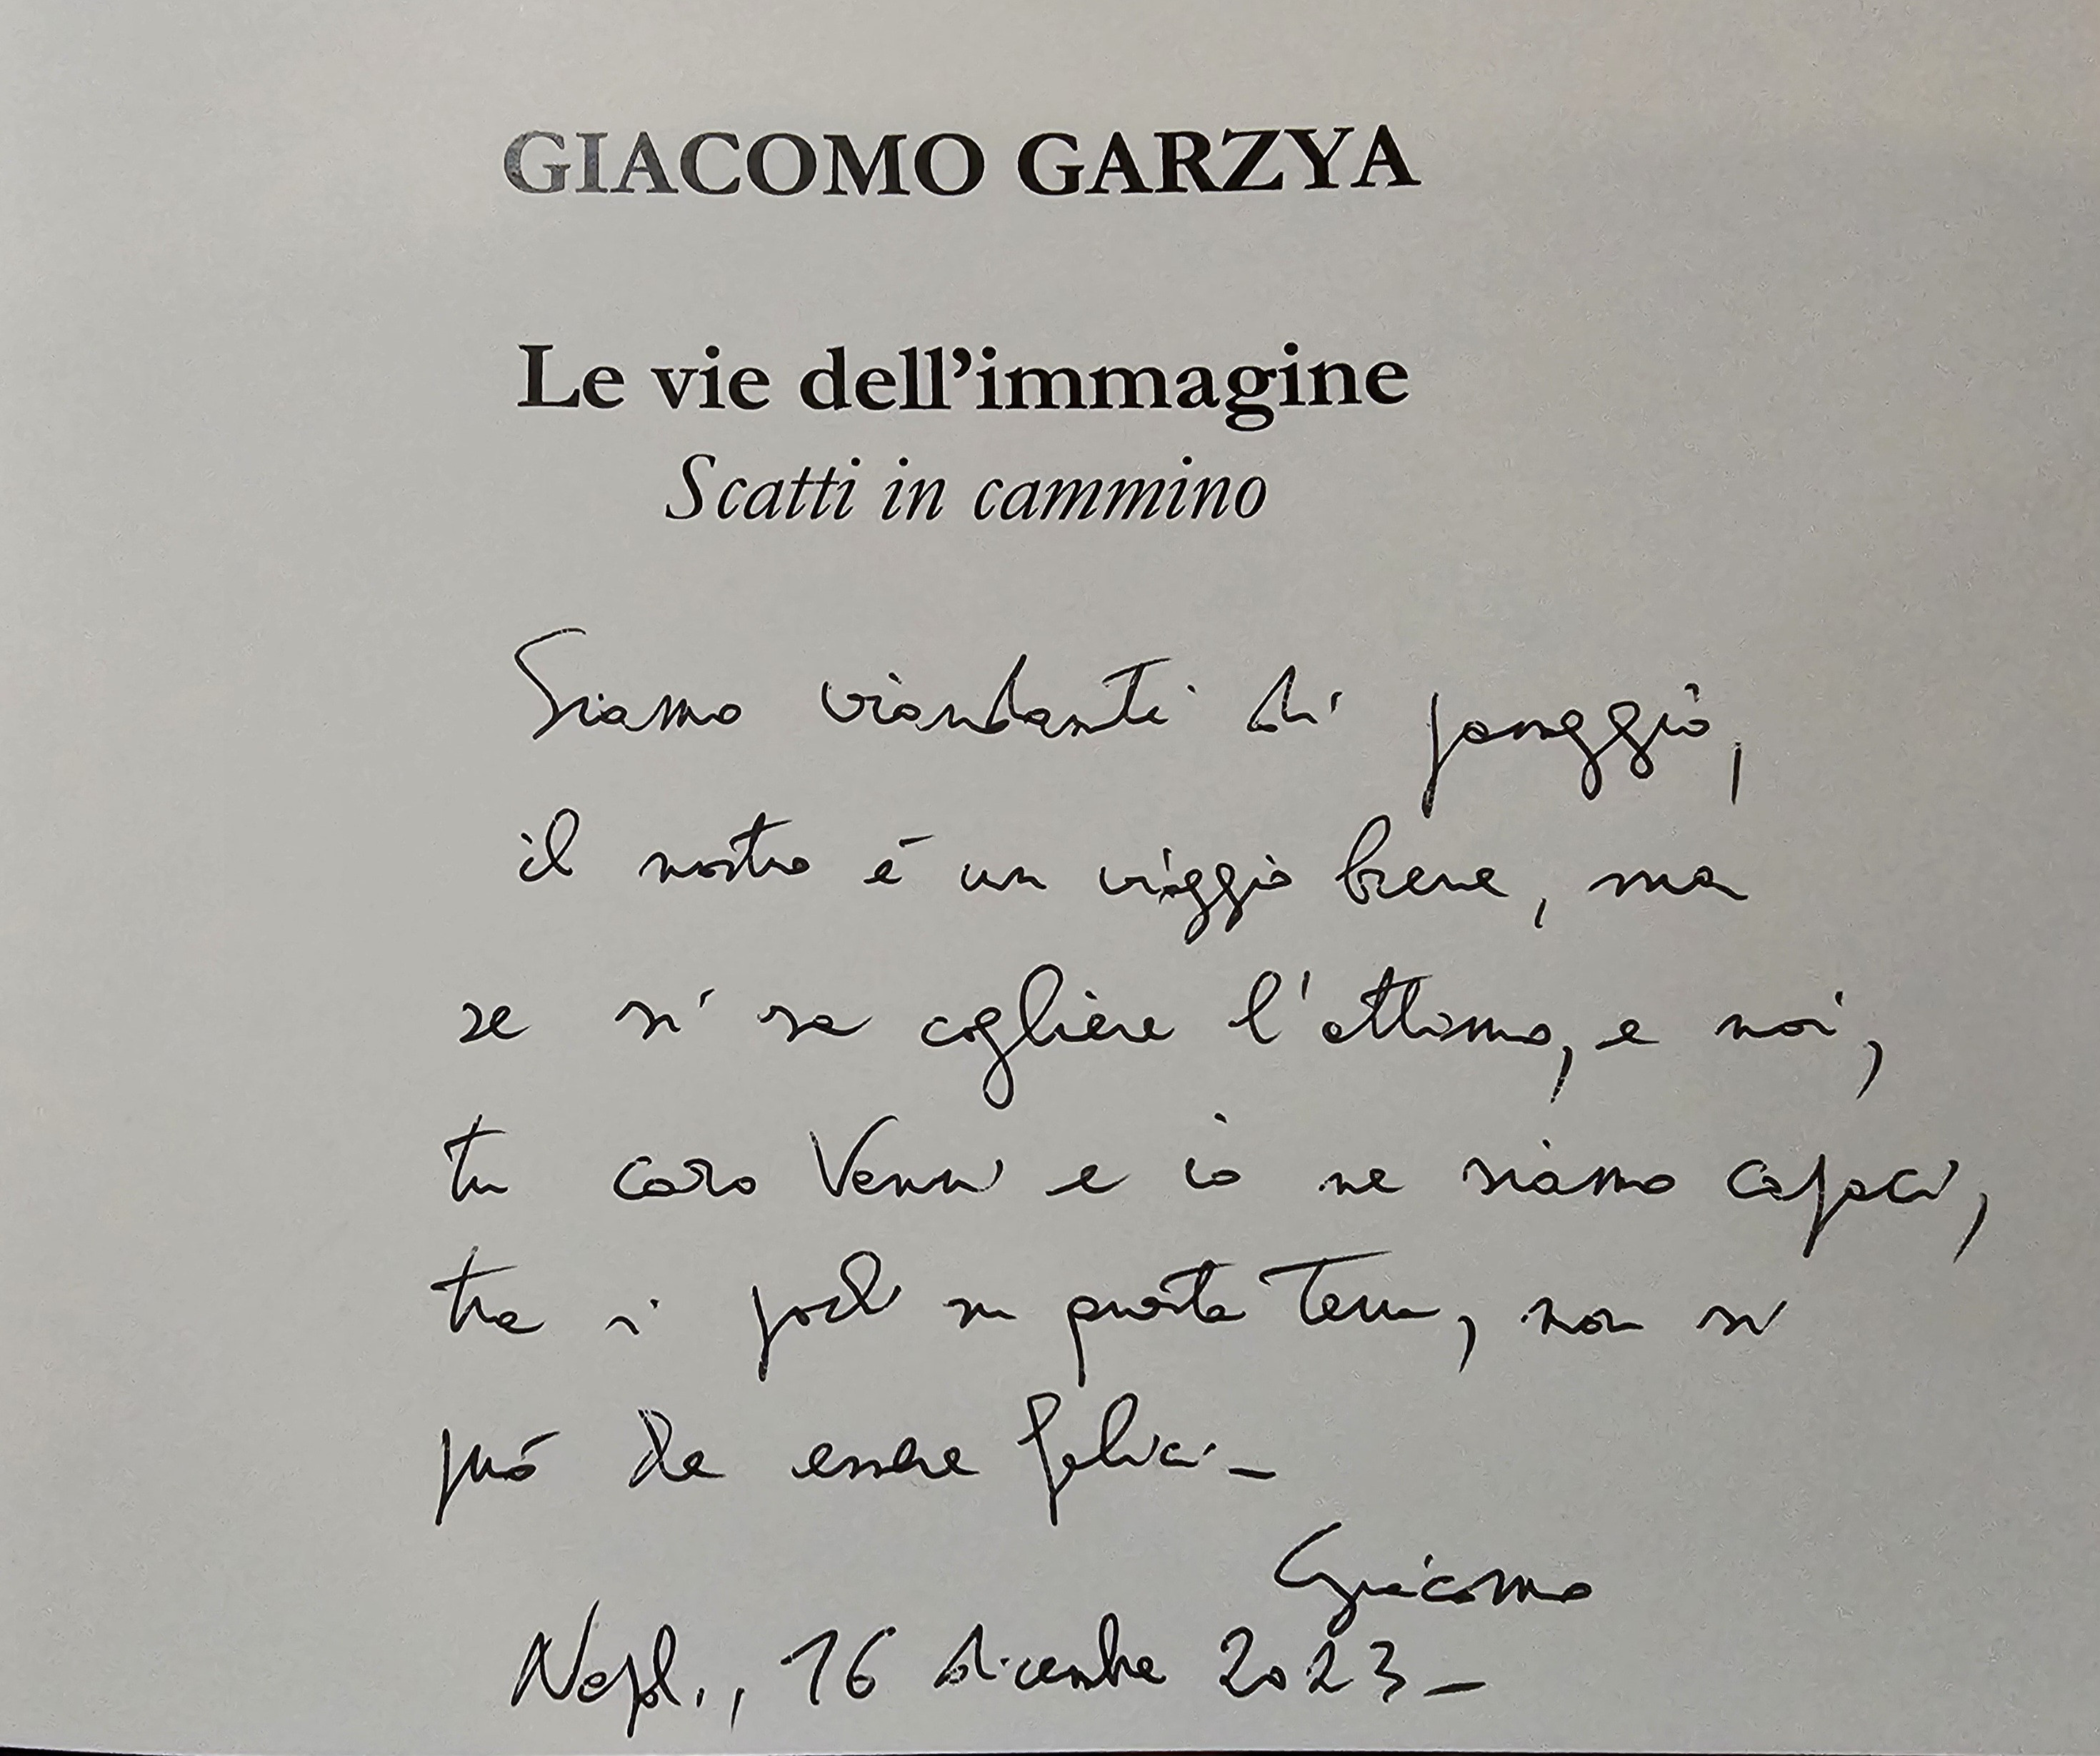 GIACOMO GARZYA
Le vie dell'immagine
Scatti in cammino
Siamo viandanti di passaggio,
il nostro è un viaggio breve, ma
se si sa cogliere l'attimo, e noi,
tu caro e io ne siamo capaci,
tra i pochi su questa Terra, non si
può che essere felici –
Giacomo
Napoli, 16 dicembre 2023 –